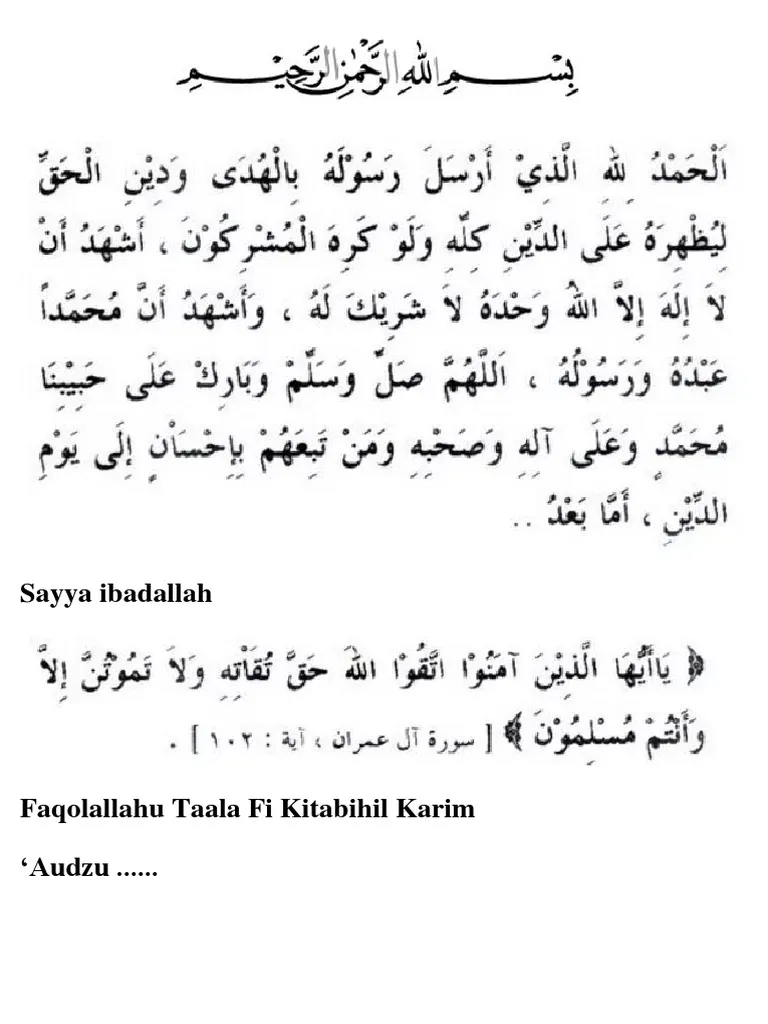 بِسْمِ اللهِ الرَّحْمٰنِ الرَّحِيْمِ
اَلْحَمْدُ لِلهِ الَّذِيْ أَرْسَلَ رَسُوْلَهُ بِالْهُدَى وَدِيْنِ الْحَقِّ
لِيُظْهِرَهُ عَلَى الدِّيْنِ كِلِّهِ وَلَوْ كَرِهَ الْمُشْرِكُوْنَ ، أَشْهَدُ أَنْ
لاَ إِلَهَ إِلاَّ اللهُ وَحْدَهُ لاَ شَرِيْكَ لَهُ ، وَأَشْهَدُ أَنَّ مُحَمَّداً
عَبْدُهُ وَرَسُوْلُهُ ، اَللَّهُمَّ صَلِّ وَسَلِّمْ وَبَارِكْ عَلَى حَبِيْبِنَا
مُحَمَّدٍ وَعَلَى آلِهِ وَصَحْبِهِ وَمَنْ تَبِعَهُمْ بِإِحْسَاْنٍ إِلَى يَوْمِ
الدِّيْنِ ، أَمَّا بَعْدُ ..
Sayya ibadallah
﴿ يَاأَيُّهَا الَّذِيْنَ آمَنُوْا اتَّقُوْا اللهَ حَقَّ تُقَاْتِهِ وَلاَ تَمُوْتُنَّ إِلاَّ
وَأَنْتُمْ مُسْلِمُوْنَ ﴾ [ سورة آل عمران ، آية : ١٠٢ ] .
Faqolallahu Taala Fi Kitabihil Karim
‘Audzu ......